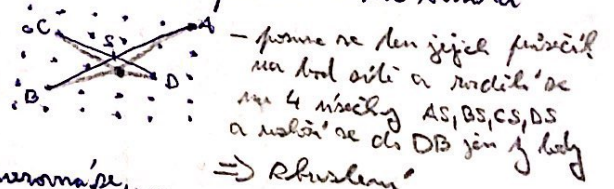 C
S
A
B
D
– posune se ten jejich průsečík
na bod sítě a rozdělí se
na 4 úsečky AS, BS, CS, DS
a uloží se do DB jen body
⇒ zkreslení